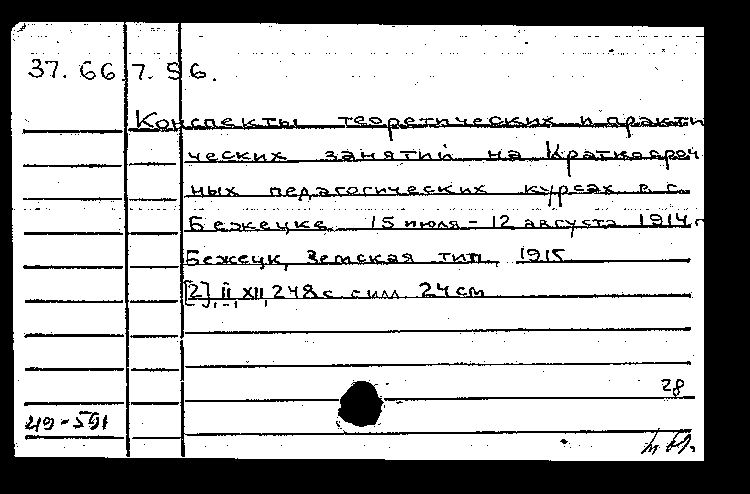 37.66.7.56.
Конспекты теоретических и практи
ческих занятий на Краткосроч
ных педагогических курсах в г.
Бежецке 15 июля - 12 августа 1914 г
Бежецк, Земская тип. 1915
[2], II, XII, 248 с. с илл. 24 см
28
49-591